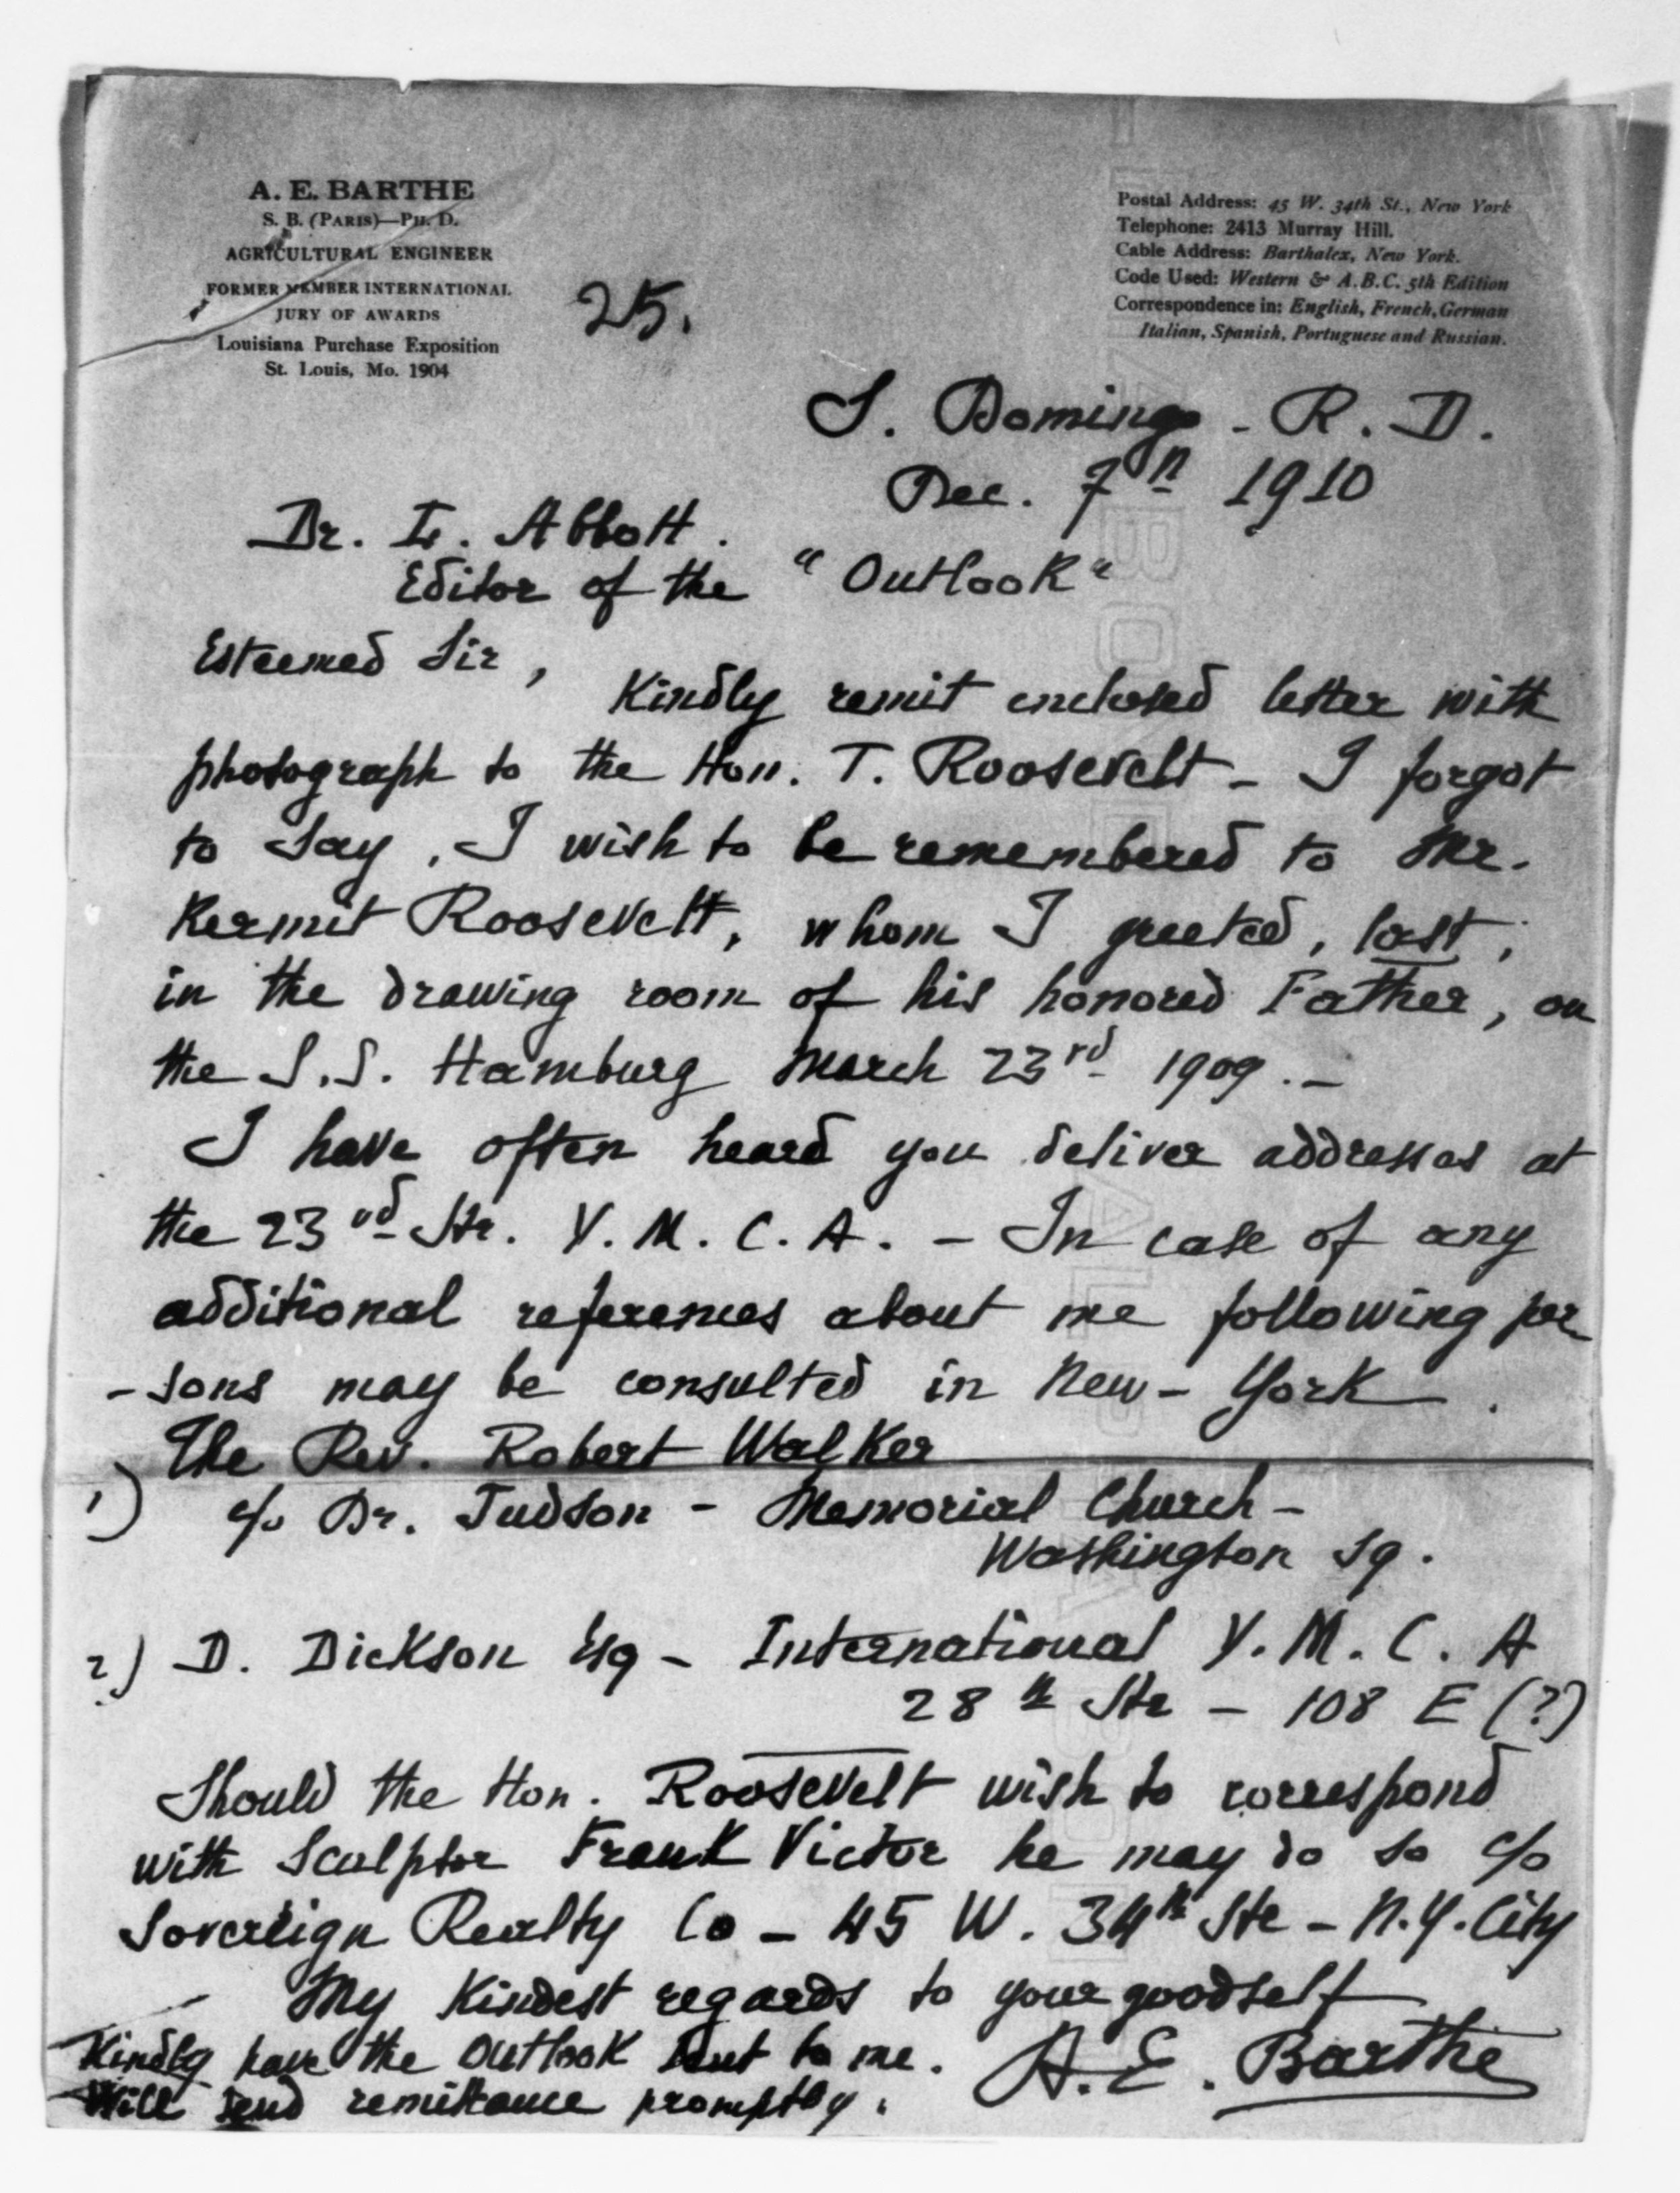 A. E. BARTHE
S. B. (PARIS)—PH. D.
AGRICULTURAL ENGINEER
FORMER MEMBER INTERNATIONAL
JURY OF AWARDS
Louisiana Purchase Exposition
St. Louis, Mo. 1904
Postal Address: 45 W. 34th St., New York
Telephone: 2413 Murray Hill.
Cable Address: Barthalex, New York.
Code Used: Western & A.B.C. 5th Edition
Correspondence in: English, French, German
Italian, Spanish, Portuguese and Russian.
25.
S. Domingo - R. D.
Dec. 7th 1910
Dr. L. Abbott.
Editor of the "Outlook"
Esteemed Sir,
Kindly remit enclosed letter with
photograph to the Hon. T. Roosevelt - I forgot
to say, I wish to be remembered to Mr.
Kermit Roosevelt, whom I greeted, last,
in the drawing room of his honored Father, on
the S.S. Hamburg March 23rd 1909. -
I have often heard you deliver addresses at
the 23rd Str. Y. M. C. A. - In case of any
additional references about me following per
-sons may be consulted in New-York.
The Rev. Robert Walker
1) c/o Dr. Judson - Memorial Church -
Washington Sq.
2) D. Dickson Esq - International Y. M. C. A
28th Str - 108 E (?)
Should the Hon. Roosevelt wish to correspond
with Sculptor Frank Victor he may do so c/o
Sovereign Realty Co - 45 W. 34th Str - N.Y. City
My kindest regards to your goodself
Kindly have the Outlook sent to me.
Will send remittance promptly.
A. E. Barthe